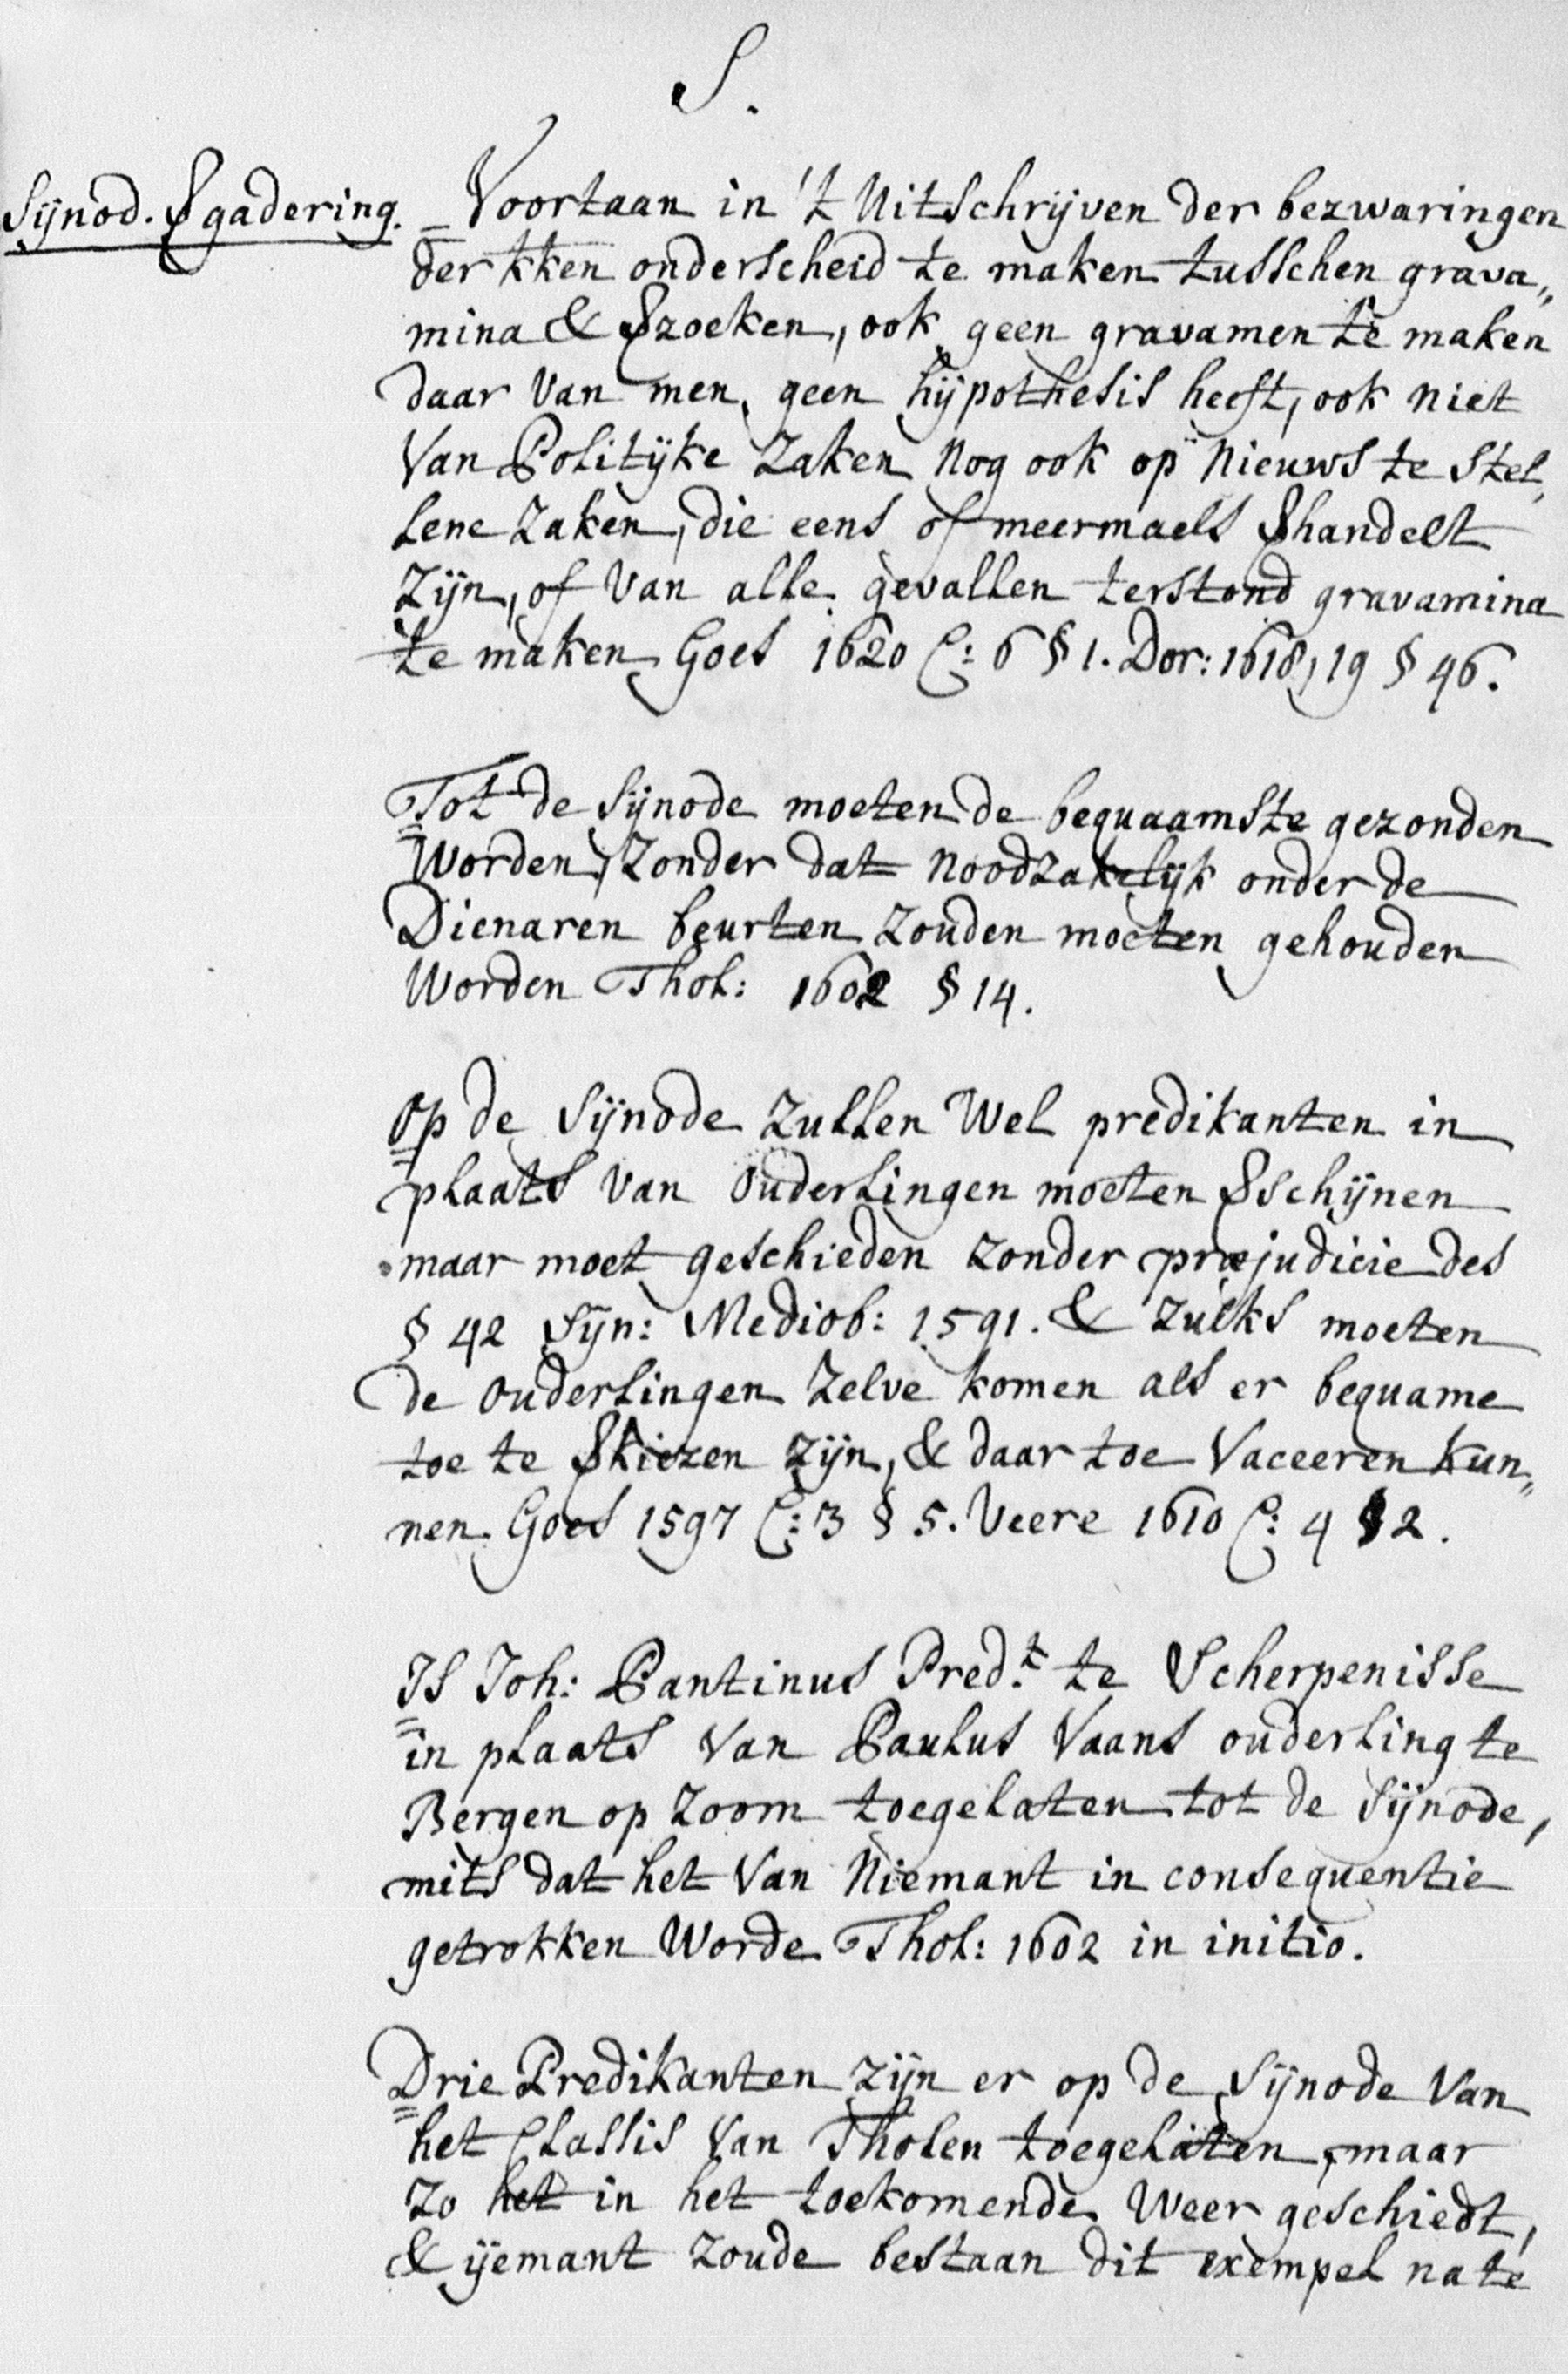 S.
Sijnod. Vgadering. Voortaan in 't Uitschrijven der bezwaringen
der kken onderscheid te maken tusschen grava„
mina & Vzoeken, ook geen gravamen te maken
daar Van men geen hijpothesis heeft, ook niet
Van Politijke Zaken nog ook op nieuws te stel„
lene Zaken, die eens of meermaels Vhandelt
Zijn, of Van alle gevallen terstond gravamina
te maken Goes 1620 C: 6 § 1. Dor: 1618, 19 § 46.
Tot de Sijnode moeten de bequaamste gezonden
Worden, Zonder dat noodzakelijk onder de
Dienaren beurten Zouden moeten gehouden
Worden Thol: 1602 § 14.
Op de Sijnode Zullen Wel predikanten in
plaats Van Ouderlingen moeten Vschijnen
maar moet geschieden zonder præjudicie des
§ 42 Sijn: Mediob: 1591. & Zulks moeten
de Ouderlingen Zelve komen als er bequame
toe te Vkiezen zijn, & daar toe Vaceeren kun„
nen. Goes 1597 C: 3 § 5. Veere 1610 C: 4 § 2.
Is Joh: Pantinus Pred.t te Scherpenisse
in plaats Van Paulus Vaans ouderling te
Bergen op Zoom toegelaten tot de Sijnode,
mits dat het Van Niemant in consequentie
getrokken Worde Thol: 1602 in initio.
Drie Predikanten zijn er op de Sijnode Van
het Classis Van Tholen toegelaten, maar
Zo het in het toekomende Weer geschiedt,
& ijemant Zoude bestaan dit exempel na te